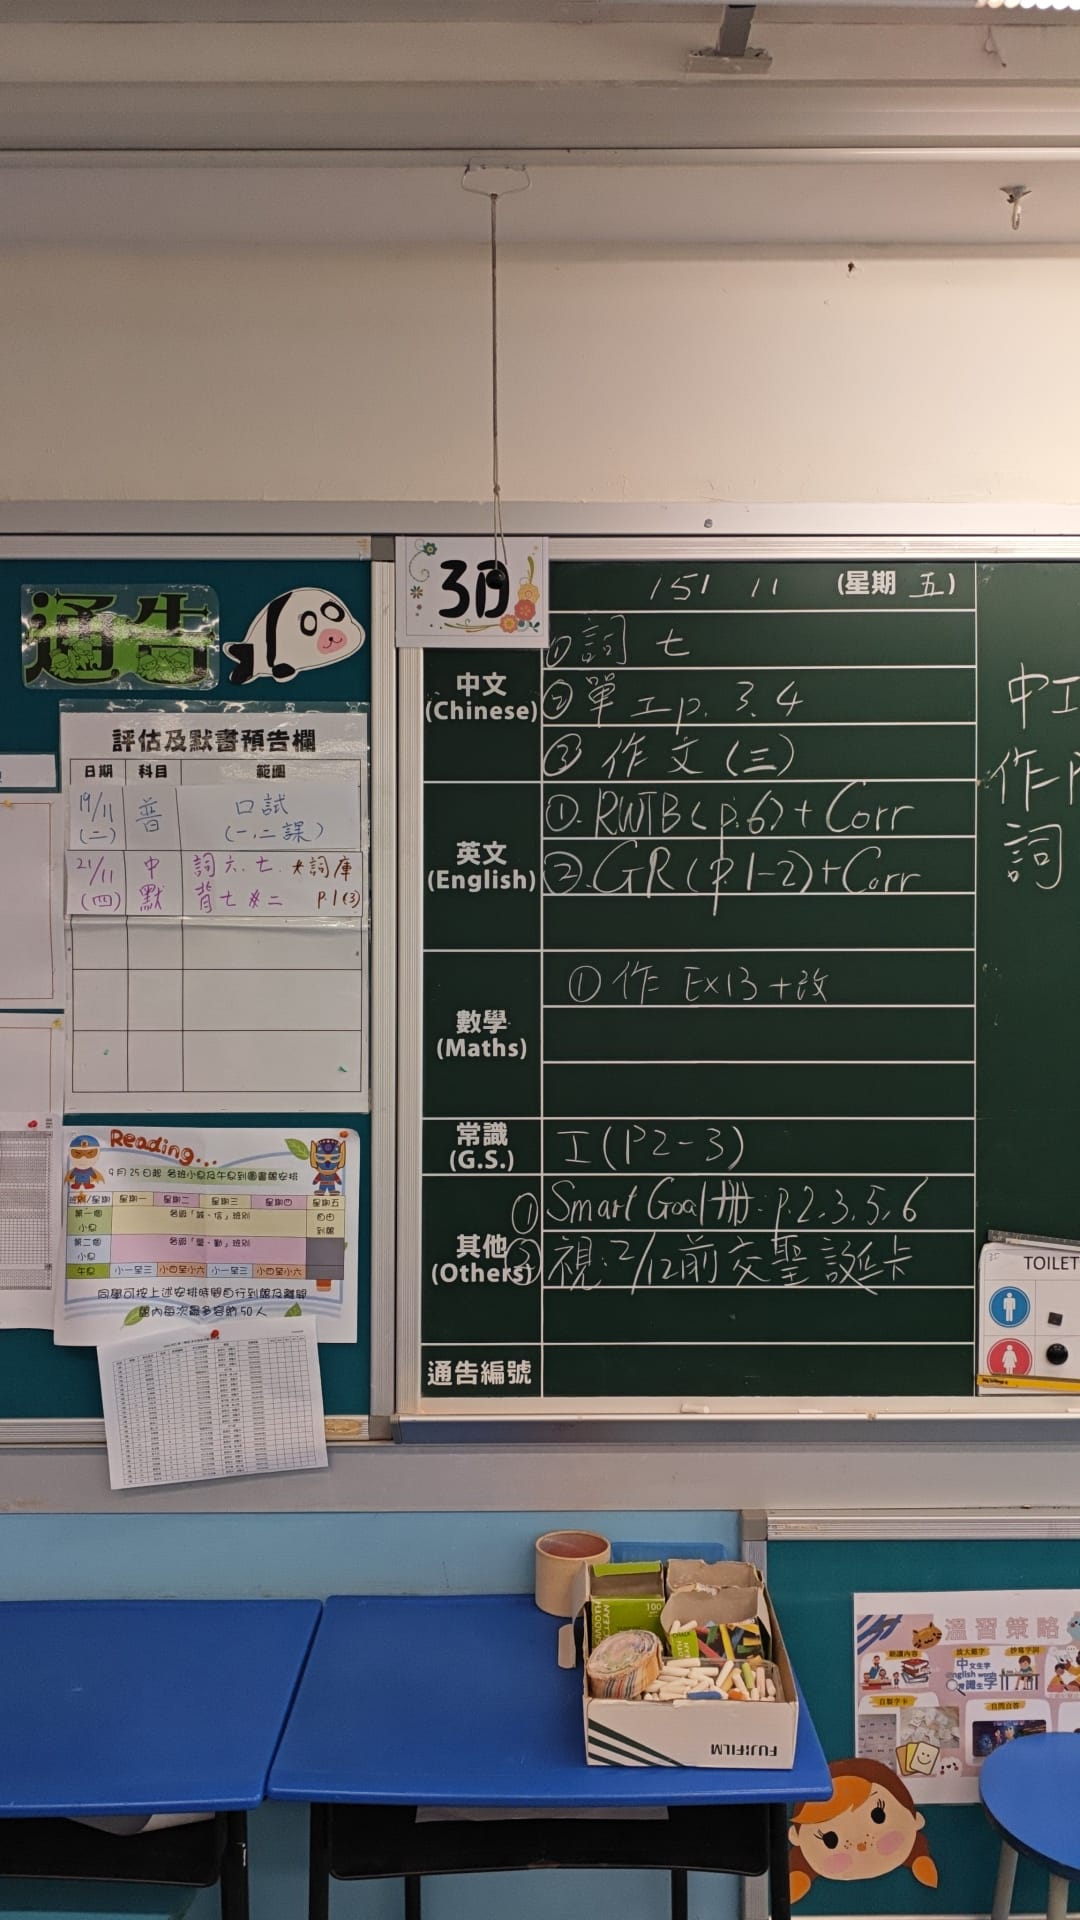 通告
評估及默書預告欄
日期 科目 範圍
19/11 (二) 普 口試 (一,二課)
21/11 (四) 中默 詞六、七、大詞庫 p.1(3)
背七 #二
Reading...
9月25日起 各班小息及午息到圖書館安排
班別/星期 星期一 星期二 星期三 星期四 星期五
第一個小息 各級「誠、信」班別 自由到館
第二個小息 各級「愛、勤」班別
午息 小一至三 小四至小六 小一至三 小四至小六
同學可按上述安排時間自行到館及離開
館內每次最多容納50人
3D
15/ 11 (星期 五)
中文 (Chinese)
① 詞 七
② 單工p. 3、4
③ 作文 (三)
英文 (English)
①. RWTB (p.6) + Corr
②. GR (p.1-2) + Corr
數學 (Maths)
① 作 Ex13 + 改
常識 (G.S.)
工(P2-3)
其他 (Others)
① Smart Goal冊: p.2、3、5、6
② 視: 2/12前交聖誕卡
通告編號
中工
作
詞
TOILET
SMOOTH CLEAN
100
FUJIFILM
溫習策略
朗讀內容
放大難字
抄寫字詞
中文生字
English words
常識生字
自製字卡
自問自答